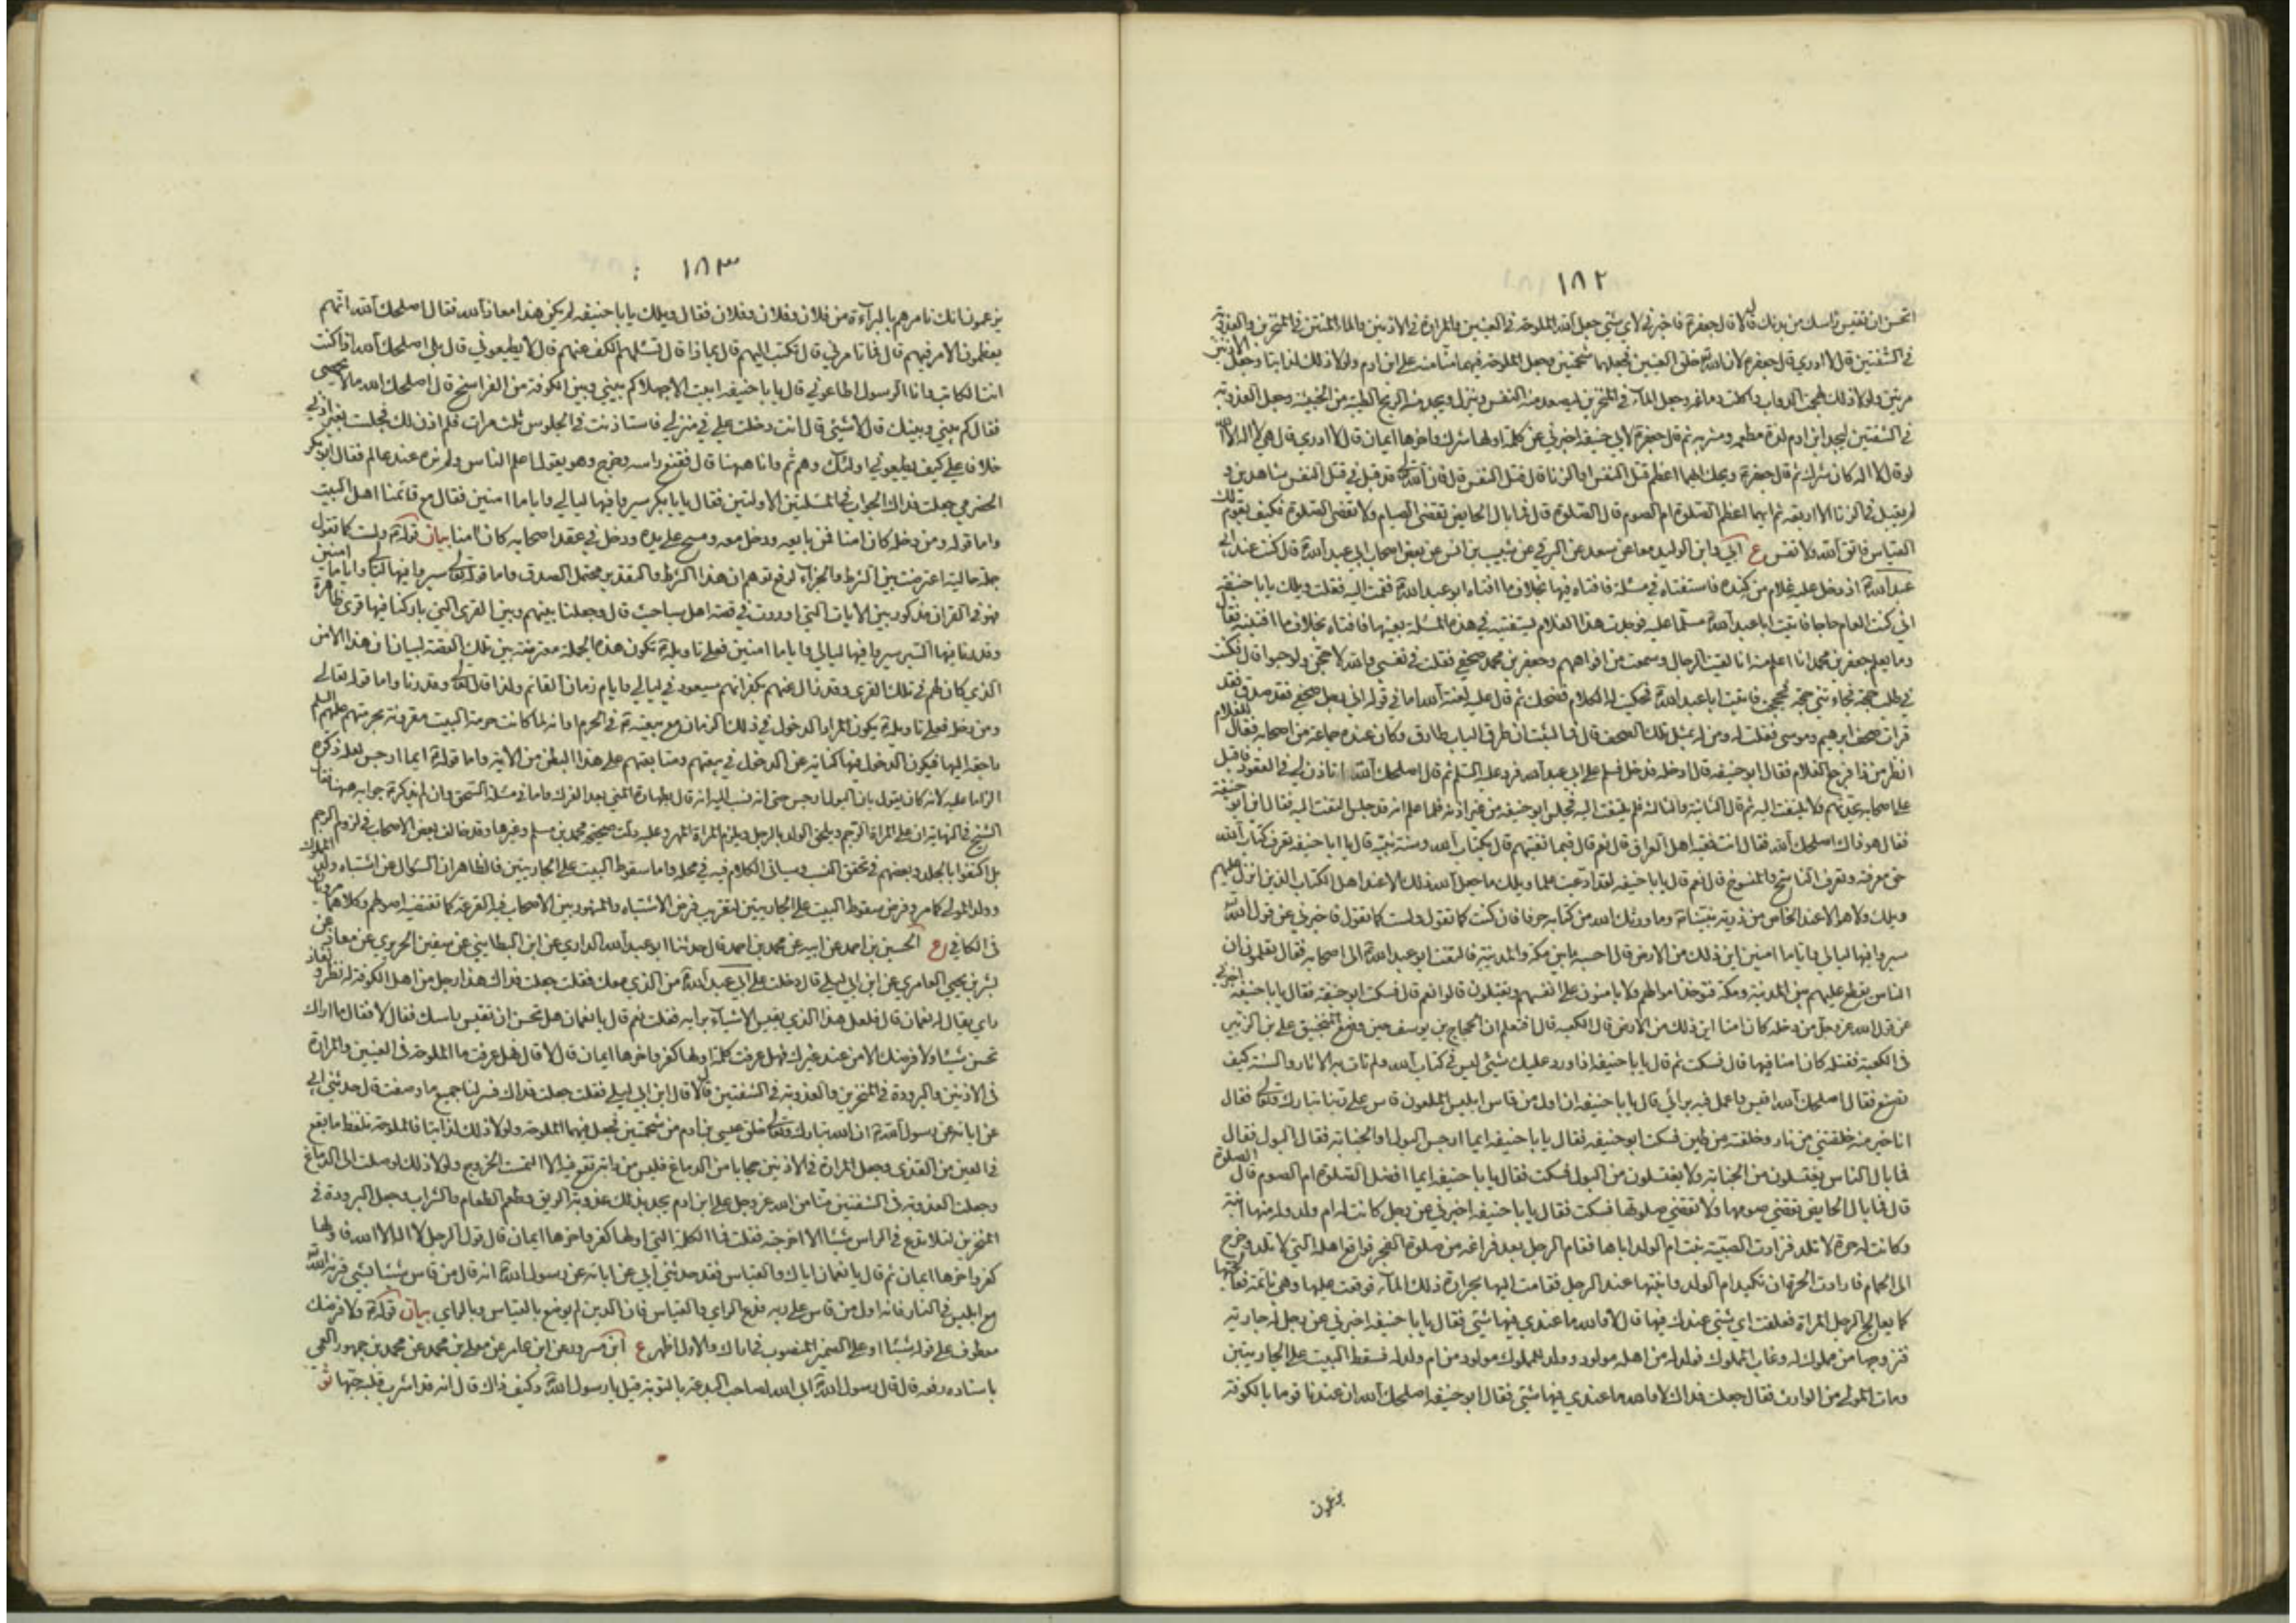 ١٨٢
اتحسن ان تقيس راسك من بدنك قال لا قال جعفر ع فاخبرني لاي شيء جعل الله الملوحة في العينين والمرارة في الاذنين والماء المنتن في المنخرين والعذوبة
في الشفتين قال لا ادري قال جعفر ع لان الله خلق العينين فجعلهما شحمتين وجعل الملوحة فيهما منا منه على ابن ادم ولولا ذلك لذابتا وجعل الاذنين
مرتين ولولا ذلك لهجمت الدواب واكلت دماغه وجعل الماء في المنخرين ليصعد منه النفس وينزل ويجد منه الريح الطيبة من الخبيثة وجعل العذوبة
في الشفتين ليجد ابن ادم لذة مطعمه ومشربه ثم قال جعفر ع لابي حنيفه اخبرني عن كلمة اولها شرك واخرها ايمان قال لا ادري قال هي لا اله الا الله
لو قال لا اله كان شرك ثم قال جعفر ع ويحك ايهما اعظم قتل النفس او الزنا قال قتل النفس قال فان الله قد قبل في قتل النفس شاهدين و
لم يقبل في الزنا الا اربعه ثم ايهما اعظم الصلوة ام الصوم قال الصلوة قال فما بال الحايض تقضي الصيام ولا تقضي الصلوة فكيف يقوم لك
القياس فاتق الله ولا تقس ع ابي وابن الوليد معا عن سعد عن البرقي عن شبيب بن انس عن بعض اصحاب ابي عبد الله ع قال كنت عند ابي
عبد الله ع اذ دخل عليه غلام من كنده فاستفتاه في مسئلة فافتاه فيها بخلاف ما افتاه ابو عبد الله ع فقمت اليه فقلت ويلك يا با حنيفه
اني كنت العام حاجا فاتيت ابا عبد الله ع مسلما عليه فوجدت هذا الغلام يستفتيه في هذه المسئلة بعينها فافتاه بخلاف ما افتيته فقال
وما يعلم جعفر بن محمد انا اعلم منه انا لقيت الرجال وسمعت من افواههم وجعفر بن محمد صحفي فقلت في نفسي والله لاحجن ولو حبوا قال فكنت
في طلب حجة فجاءتني حجة فحججت فاتيت ابا عبد الله ع فحكيت له الكلام فضحك ثم قال عليه لعنة الله اما في قوله اني رجل صحفي فقد صدق لقد
قرات صحف ابرهيم وموسى فقلت له ومن له بمثل تلك الصحف قال فما لبثت ان طرق الباب طارق وكان عنده جماعة من اصحابه فقال للغلام
انظر من ذا فرجع الغلام فقال ابو حنيفه قال ادخله فدخل فسلم على ابي عبد الله فرد عليه السلم ثم قال اصلحك الله اتاذن لي في القعود فاقبل
على اصحابه يحدثهم فلا يلتفت اليه ثم قال الثانية والثالثة فلم يلتفت اليه فجلس ابو حنيفه من غير اذنه فلما علم انه قد جلس التفت اليه فقال اين ابو حنيفة
فقال هو ذاك اصلحك الله فقال انت فقيه اهل العراق قال نعم قال فبما تفتيهم قال بكتاب الله وسنة نبيه قال يا ابا حنيفه تعرف كتاب الله
حق معرفته وتعرف الناسخ والمنسوخ قال نعم قال يا با حنيفه لقد ادعيت علما ويلك ما جعل الله ذلك الا عند اهل الكتاب الذين انزل عليهم
ويلك ولا هو الا عند الخاص من ذرية نبينا ع وما ورثك الله من كتابه حرفا فان كنت كما تقول ولست كما تقول فاخبرني عن قول الله
سيروا فيها ليالي واياما امنين اين ذلك من الارض قال احسبه ما بين مكة والمدينة فالتفت ابو عبد الله ع الى اصحابه فقال تعلمون ان
الناس يقطع عليهم بين المدينة ومكة فتوخذ اموالهم ولا يامنون على انفسهم ويقتلون قالوا نعم قال فسكت ابو حنيفة فقال يا با حنيفة اخبرني
عن قول الله عز وجل من دخله كان امنا اين ذلك من الارض قال الكعبه قال افتعلم ان الحجاج بن يوسف حين وضع المنجنيق على بن الزبير
في الكعبة فقتله كان امنا فيها قال فسكت ثم قال يا با حنيفه اذا ورد عليك شيئ ليس في كتاب الله ولم تات به الاثار والسنة كيف
تصنع فقال اصلحك الله اقيس واعمل فيه برايي قال يا با حنيفه ان اول من قاس ابليس الملعون قاس على ربنا تبارك وتعالى فقال
انا خير منه خلقتني من نار وخلقته من طين فسكت ابو حنيفه فقال يا با حنيفه ايما ارجس البول او الجنابة فقال البول فقال
فما بال الناس يغتسلون من الجنابة ولا يغتسلون من البول فسكت فقال يا با حنيفه ايما افضل الصلوة ام الصوم قال الصلوة
قال فما بال الحايض تقضي صومها ولا تقضي صلوتها فسكت فقال يا با حنيفه اخبرني عن رجل كانت له ام ولد وله منها ابنة
وكانت له حرة لا تلد فزارت الصبية بنت ام الولد اباها فقام الرجل بعد فراغه من صلوة الفجر فواقع اهله التي لا تلد وخرج
الى الحمام فارادت الحرة ان تكيد ام الولد وابنتها عند الرجل فقامت اليها بحرارة ذلك الماء فوقعت عليها وهي نائمة فعالجتها
كما يعالج الرجل المراة فعلقت اي شيئ عندك فيها قال لا والله ما عندي فيها شيئ فقال يا با حنيفه اخبرني عن رجل له جارية
فزوجها من مملوك له وغاب المملوك فولد له من اهله مولود وولد للمملوك مولود من ام ولد له فسقط البيت على الجاريتين
ومات المولى من الوارث فقال جعلت فداك لا والله ما عندي فيها شيئ فقال ابو حنيفه اصلحك الله ان عندنا قوما بالكوفة
يزعمون
١٨٣
يزعمون انك تامرهم بالبراءة من فلان وفلان وفلان فقال ويلك يا با حنيفه لم يكن هذا معاذ الله فقال اصلحك الله انهم
يعظمون الامر فيهم قال فما تامرني قال تكتب اليهم قال بماذا قال تسئلهم الكف عنهم قال لا يطيعوني قال بلى اصلحك الله اذا كنت
انت الكاتب وانا الرسول اطاعوني قال يا با حنيفه ابيت الا جهلا كم بيني وبين الكوفة من الفراسخ قال اصلحك الله ما لا يحصى
فقال كم بيني وبينك قال لا شيئ قال انت دخلت علي في منزلي فاستاذنت في الجلوس ثلث مرات فلم اذن لك فجلست بغير اذني
خلافا علي كيف يطيعوني اولئك وهم ثم وانا ههنا قال فقنع راسه وخرج وهو يقول اعلم الناس ولم نره عند عالم فقال ابو بكر
الحضرمي جعلت فداك الجواب في المسئلتين الاولتين فقال يا با بكر سيروا فيها ليالي واياما امنين فقال مع قائمنا اهل البيت
واما قوله ومن دخله كان امنا فمن بايعه ودخل معه ومسح على يده ودخل في عقد اصحابه كان امنا بيان قوله ع ولست كما تقول
جملة حالية اعترضت بين الشرط والجزاء لرفع توهم ان هذا الشرط والتقدير محتمل الصدق واما قوله تعالى سيروا فيها ليالي واياما امنين
فهو في القران مذكور بين الايات التي اوردت في قصة اهل سبا حيث قال وجعلنا بينهم وبين القرى التي باركنا فيها قرى ظاهرة
وقدرنا فيها السير سيروا فيها ليالي واياما امنين فعلى تاويله ع تكون هذه الجملة معترضة بين تلك القصة لبيان ان هذا الامن
الذي كان لهم في تلك القرى وقد زال عنهم بكفرانهم سيعود في ليالي وايام زمان القائم ولذا قال تعالى وقدرنا واما قوله تعالى
ومن دخله فعلى تاويله ع يكون المراد الدخول في ذلك الزمان مع بيعته ع في الحرم او انه لما كانت حرمة البيت مقرونة بحرمتهم عليهم السلم
راجعة اليها فيكون الدخول فيها كناية عن الدخول في بيعتهم ومتابعتهم على هذا البطن من الاية واما قوله ع ايما ارجس لعله ذكره
الزاما عليه لانه كان يقول بان البول ارجس حتى انه نسب اليه انه قال بطهارة المني بعد الفرك واما في مسئلة السحق وان لم يذكر ع جوابه ههنا فقال
الشيخ في النهاية ان على المراة الرجم ويلحق الولد بالرجل ويلزم المراة المهر وعليه دلت صحيحة محمد بن مسلم وغيرها وقد خالف بعض الاصحاب في لزوم الرجم
بل اكتفوا بالجلد وبعضهم في تحقق النسب وسياتي الكلام فيه في محله واما سقوط البيت على الجاريتين فالظاهر ان السؤال عن اشتباه ولد المملوك
وولد المولى كما مر وفرض سقوط البيت على الجاريتين لتقريب فرض الاشتباه والمشهور بين الاصحاب فيه القرعة كما تقتضيه اصولهم وكلاهما مرويان
في الكافي ع الحسين بن احمد عن ابيه عن محمد بن احمد قال حدثنا ابو عبد الله الرازي عن ابن البطايني عن سفين الحريري عن معاذ عن
بشر بن يحيى العامري عن ابن ابي ليلى قال دخلت على ابي عبد الله ع من الذي معك فقلت جعلت فداك هذا رجل من اهل الكوفة له نظر و نفاذ
راي يقال له نعمان قال فلعل هذا الذي يقيس الاشياء برايه فقلت نعم قال يا نعمان هل تحسن ان تقيس راسك فقال لا فقال ما اراك
تحسن شيئا ولا فرضك الا من عند غيرك فهل عرفت كلمة اولها كفر واخرها ايمان قال لا قال فهل عرفت ما الملوحة في العينين والمرارة
في الاذنين والبرودة في المنخرين والعذوبة في الشفتين قال لا قال ابن ابي ليلى فقلت جعلت فداك فسر لنا جميع ما وصفت قال حدثني ابي
عن ابائه عن رسول الله ع ان الله تبارك وتعالى خلق عيني ابن ادم من شحمتين فجعل فيهما الملوحة ولولا ذلك لذابتا فالملوحة تلفظ ما يقع
في العين من القذى وجعل المرارة في الاذنين حجابا من الدماغ فليس من دابة تقع فيه الا التمست الخروج ولولا ذلك لوصلت الى الدماغ
وجعلت العذوبة في الشفتين منا من الله عز وجل على ابن ادم يجد بذلك عذوبة الريق وطعم الطعام والشراب وجعل البرودة في
المنخرين لئلا تدع في الراس شيئا الا اخرجته فقلت فما الكلمة التي اولها كفر واخرها ايمان قال قول الرجل لا اله الا الله فاولها
كفر واخرها ايمان ثم قال يا نعمان اياك والقياس فقد حدثني ابي عن ابائه عن رسول الله ع انه قال من قاس شيئا بشيئ قرنه الله
مع ابليس في النار فانه اول من قاس على ربه فدع الراي والقياس فان الدين لم يوضع بالقياس وبالراي بيان قوله ع ولا فرضك
معطوف على قوله شيئا او على الضمير المنصوب في اراك والاول اظهر ع ابن مسرور عن ابن عامر عن معلى بن محمد عن محمد بن جمهور العمي
باسناده رفعه قال قال رسول الله ع ابى الله لصاحب البدعة بالتوبة قيل يا رسول الله ع وكيف ذاك قال انه قد اشرب قلبه حبها ثو